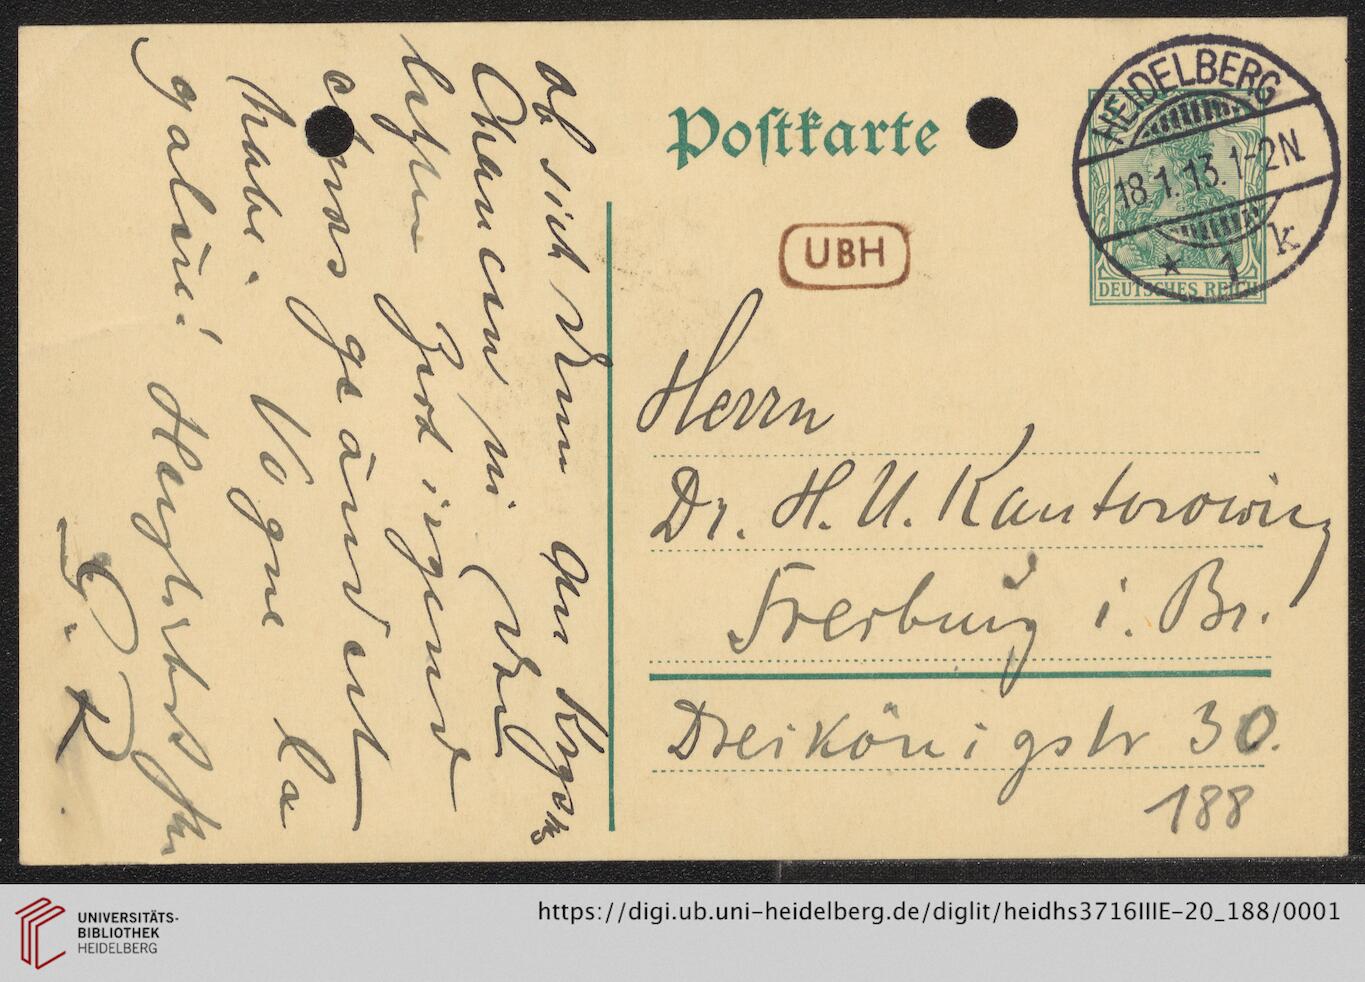 Postkarte
HEIDELBERG
18.1.13.1-2N.
* 1 k
DEUTSCHES REICH
UBH
Herrn
Dr. H. U. Kantorowicz
Freiburg i. Br.
Dreikönigstr 30.
188
ob sich denn an
Chancen
irgend
etwas geändert
habe. Vogue la
galère! Herzlichst Ihr
G. R.
UNIVERSITÄTS-
BIBLIOTHEK
HEIDELBERG
https://digi.ub.uni-heidelberg.de/diglit/heidhs3716IIIE-20_188/0001